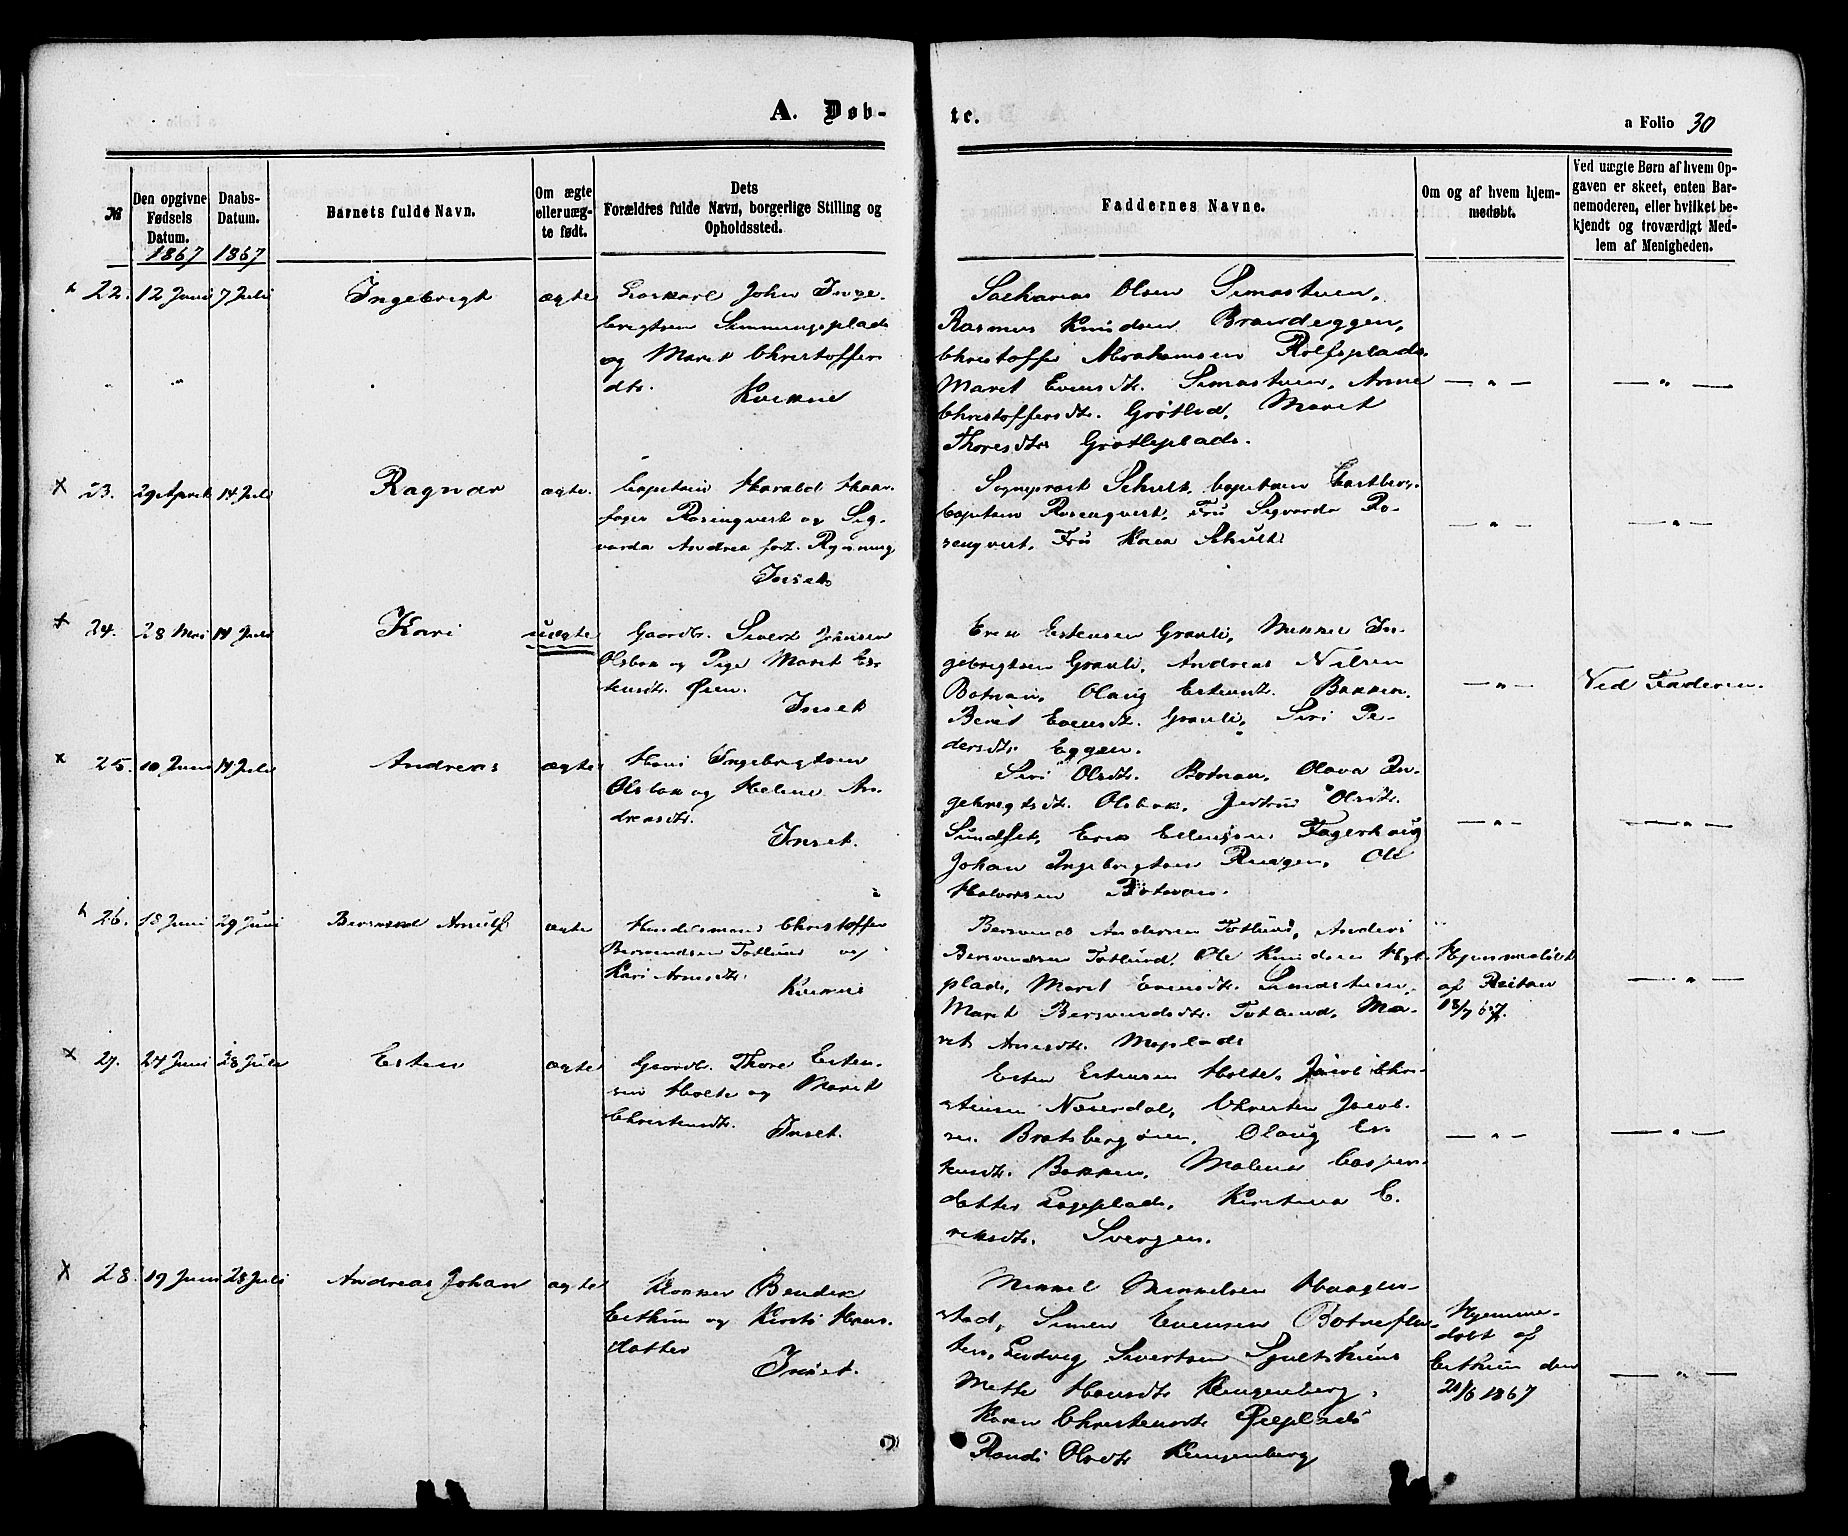 A. Døb-
te.
a Folio 30
№
Den opgivne Fødsels Datum.
1867
Daabs-Datum.
1867
Barnets fulde Navn.
Om ægte eller uæg-te født.
Dets Forældres fulde Navn, borgerlige Stilling og Opholdssted.
Faddernes Navne.
Om og af hvem hjem-medøbt.
Ved uægte Børn af hvem Op-gaven er skeet, enten Bar-nemoderen, eller hvilket be-kjendt og troværdigt Med-lem af Menigheden.
22. 12 Juni 7 Juli Ingebrigt ægte
John Inge-
brigtsen
og Maret Christoffers
dtr. Kvikne
Olsen Simastuen,
Rasmus Knudsen Brandeggen,
Christoffer Abrahamsen Rolfsplads
Maret Evensdtr. Simastuen, Anne
Christoffersdtr. Grøtlid, Maret
Thoresdtr Grøtliplads.
— " — — " —
23. 29 April 14 Juli Ragnar ægte.
Capitain Harald Haar-
fager Rosenqvist og Sig-
varda Andrea født Rynning
Inset
Sogneprest Schult, Capitain
Capitain Rosenqvist, Fru Sigvarda Ro-
senqvist, Fru Schult
— " — — " —
24. 28 Mai 14 Juli Kari uægte
Gaardbr. Sivert Johnsen
Olsbak og Pige Maret Es-
tensdtr. Øien.
Inset
Erik Estensen Grauli, Mikkel In-
gebrigtsen Grauli, Andreas Nilsen
Botnan, Olaug Estensdtr. Bakken,
Berit Evensdtr. Grauli, Siri Pe-
dersdtr. Eggen.
— " — Ved Faderen.
25. 10 Juni 14 Juli Andreas ægte
Hans Ingebrigtsen
Olsbak og Helene An-
dreasdtr.
Inset.
Siri Olsdtr. Botnan, Olava In-
gebrigtsdtr. Olsbak, Olsdtr.
Sundset, Erik Fagerhaug
Johan Ingebrigtsen Ole
Halvorsen Botnan.
— " — — " —
26. 18 Juni 29 Juni Arnulf ægte
Handelsmand Christoffer
Bersvendsen Totlund og
Kari Arnesdtr.
Kvikne
Bersvend Andersen Totlund, Anders
Bersvendsen Totlund, Ole Knudsen
plads, Maret Evensdtr.
Maret Bersvendsdtr. Totlund, Ma-
ret Arnesdtr. Moplads
Hjemmedøbt
af Reitan
18/7 67.
— " —
27. 24 Juni 28 Juli Esten ægte
Gaardbr. Thore Esten-
sen Holte og Maret
Christensdtr.
Inset.
Esten Estensen Holte, Jacob Chri-
stensen Næverdal, Christen Jacob-
sen Bratsbergøien, Olaug Es-
tensdtr. Bakken, Malene Casper-
datter Kirstina E-
riksdtr. Svergen.
— " — — " —
28. 19 Juni 28 Juli Andreas Johan ægte
Klokker Bendik
Eithun og Kirsti Hans-
datter
Inset.
Mikkel Mikkelsen Haagen-
stad, Simen Evensen
Ludvig Sivertsen
Mette Hansdtr Klingenberg,
Karen Christensdtr Øieplads
Randi Olsdtr Klingenberg
Hjemme-
døbt af
Eithun den
20/6 1867
— " —